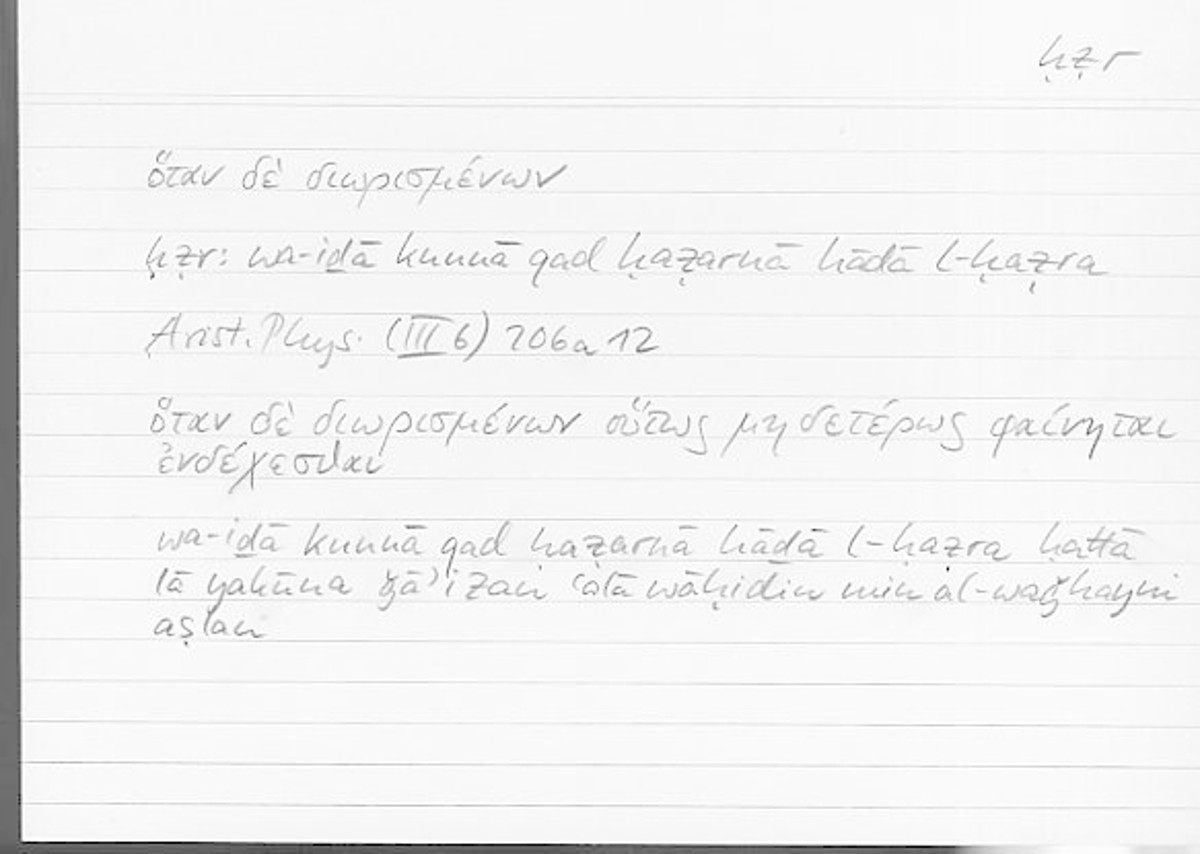 ḥẓr
ὅταν δὲ διωρισμένων
ḥẓr: wa-iḏā kunnā qad ḥaẓarnā hāḏā l-ḥaẓra
Arist. Phys. (III 6) 206a 12
ὅταν δὲ διωρισμένων οὕτως μηδετέρως φαίνηται
ἐνδέχεσθαι
wa-iḏā kunnā qad ḥaẓarnā hāḏā l-ḥaẓra ḥattā
lā yakūna ǧāʾizan ʿalā wāḥidin min al-waǧhayni
aṣlan